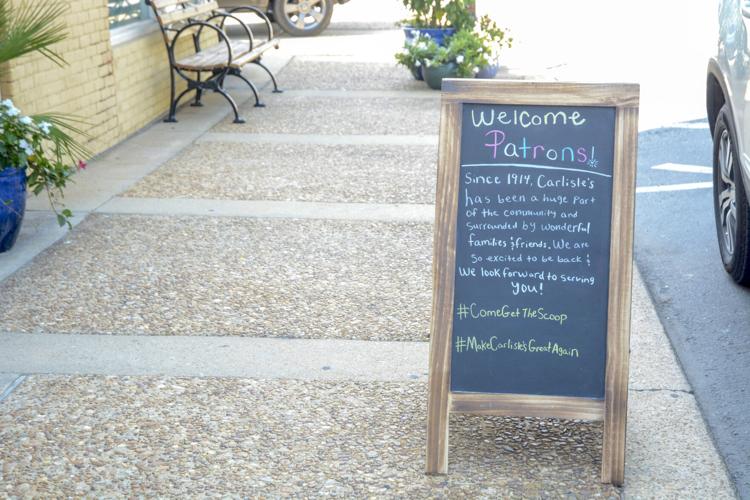 Welcome
Patrons!
Since 1914, Carlisle's
has been a huge part
of the community and
surrounded by wonderful
families & friends. We are
so excited to be back &
We look forward to serving
you!
#ComeGetTheScoop
#MakeCarlisle'sGreatAgain